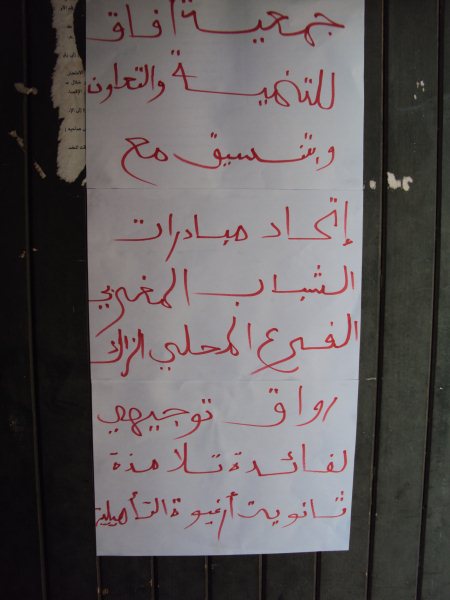 جمعية آفاق
للتنمية والتعاون
وبتنسيق مع
إتحاد مبادرات
الشباب المغربي
الفرع المحلي الزاك
رواق توجيهي
لفائدة تلامذة
ثانوية أرغيوة التأهيلية